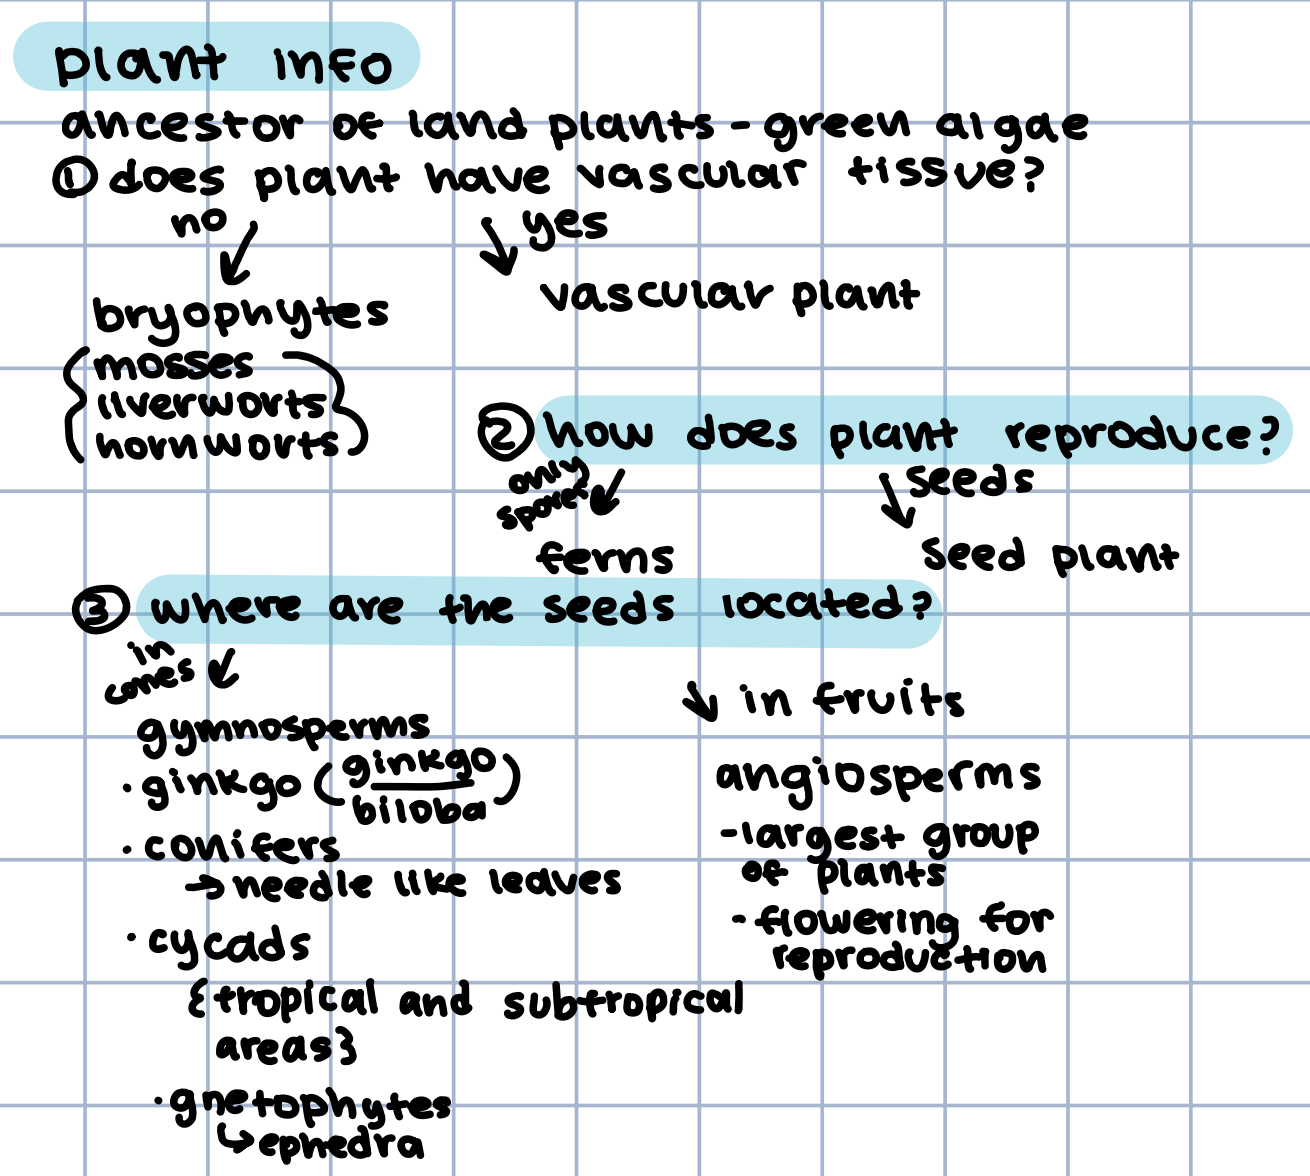 plant info
ancestor of land plants - green algae
① does plant have vascular tissue?
no ↙
↘ yes
bryophytes
{mosses
liverworts
hornworts}
vascular plant
② how does plant reproduce?
only
spores ↙
↘ seeds
ferns
seed plant
③ where are the seeds located?
in
cones ↙
↘ in fruits
gymnosperms
· ginkgo (ginkgo
biloba)
· conifers
→ needle like leaves
· cycads
{tropical and subtropical
areas}
· gnetophytes
↳ ephedra
angiosperms
- largest group
of plants
- flowering for
reproduction